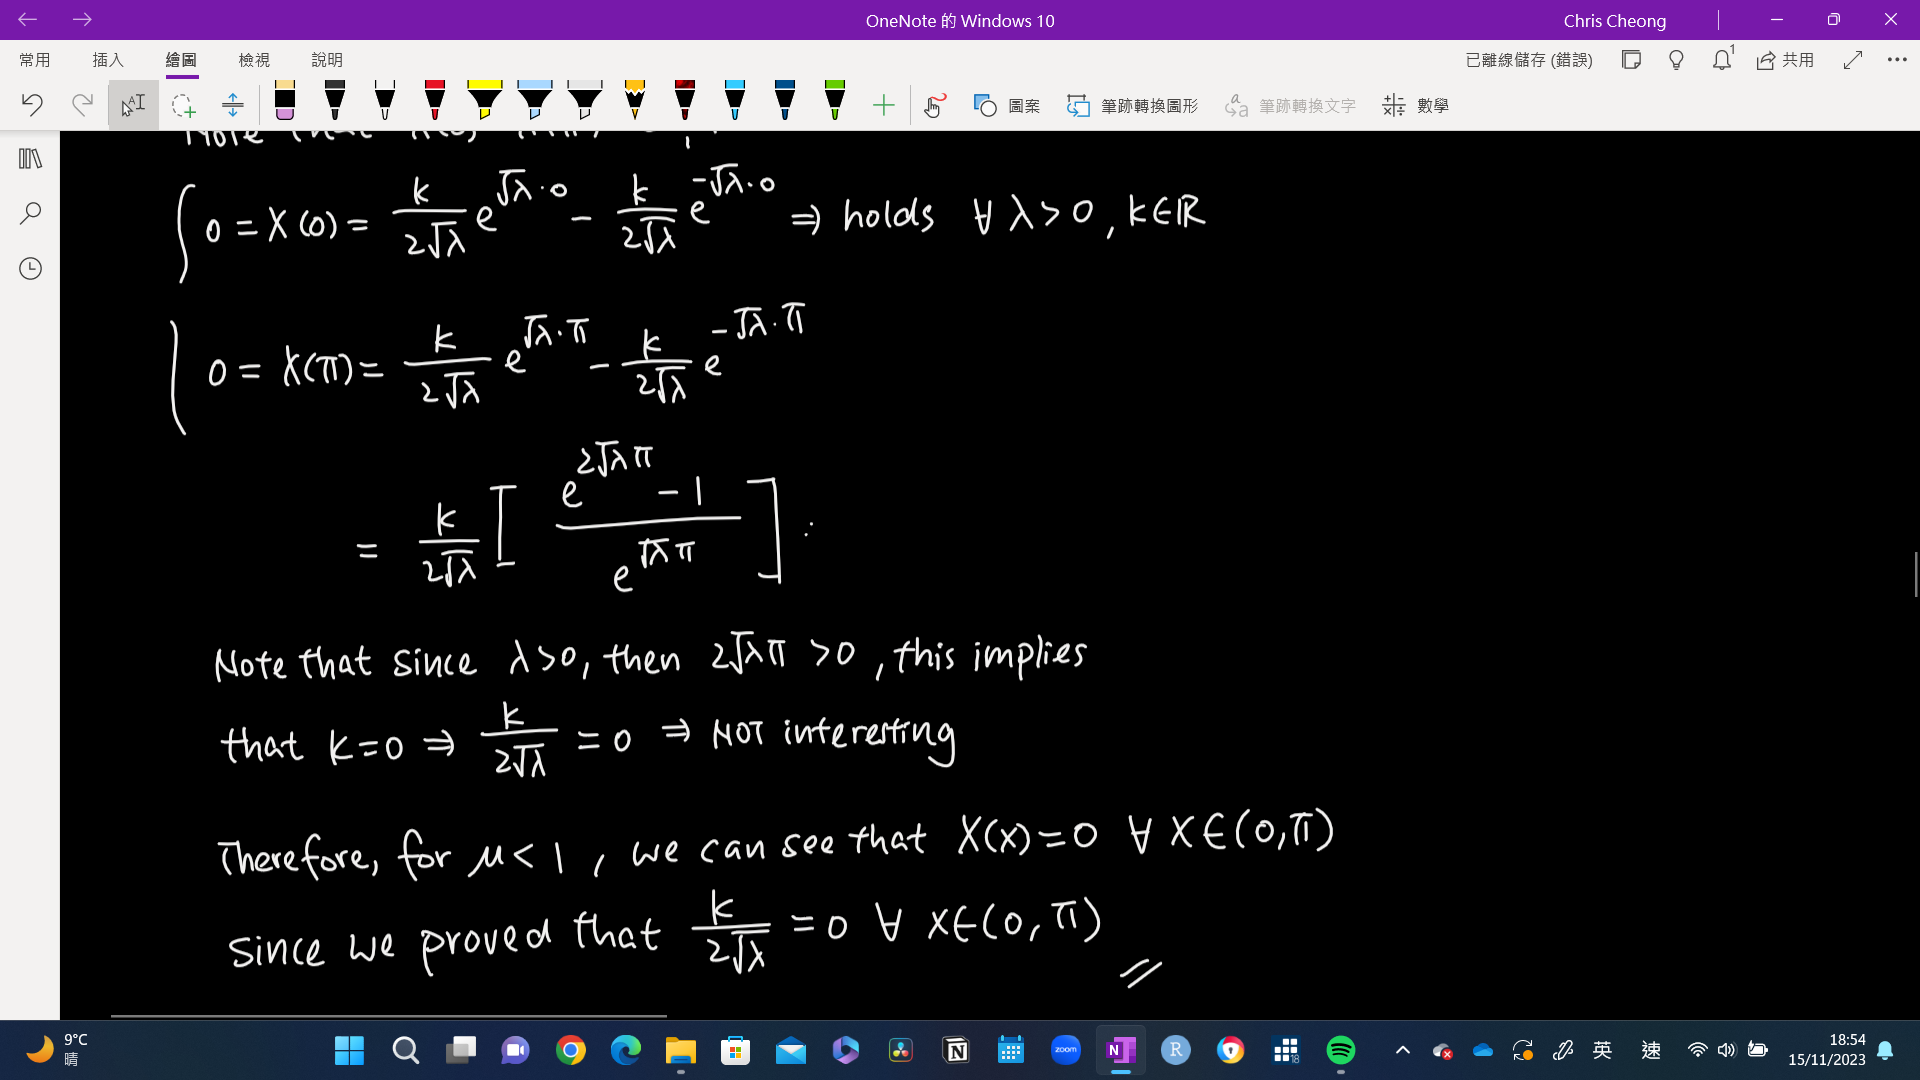 OneNote 的 Windows 10
Chris Cheong
常用 插入 繪圖 檢視 說明
已離線儲存 (錯誤) 1 共用
圖案 筆跡轉換圖形 筆跡轉換文字 數學
Note that
0 = X(0) = k/(2√λ) e^(√λ·0) − k/(2√λ) e^(−√λ·0) ⇒ holds ∀ λ>0, k∈ℝ
0 = X(π) = k/(2√λ) e^(√λ·π) − k/(2√λ) e^(−√λ·π)
= k/(2√λ) [ (e^(2√λπ) − 1) / e^(√λπ) ]
Note that since λ>0, then 2√λπ >0, this implies
that k=0 ⇒ k/(2√λ) = 0 ⇒ NOT interesting
Therefore, for μ<1, we can see that X(x)=0 ∀ x∈(0,π)
since we proved that k/(2√λ) = 0 ∀ x∈(0,π)
9°C
晴
zoom
N
R
18
英
速
18:54
15/11/2023